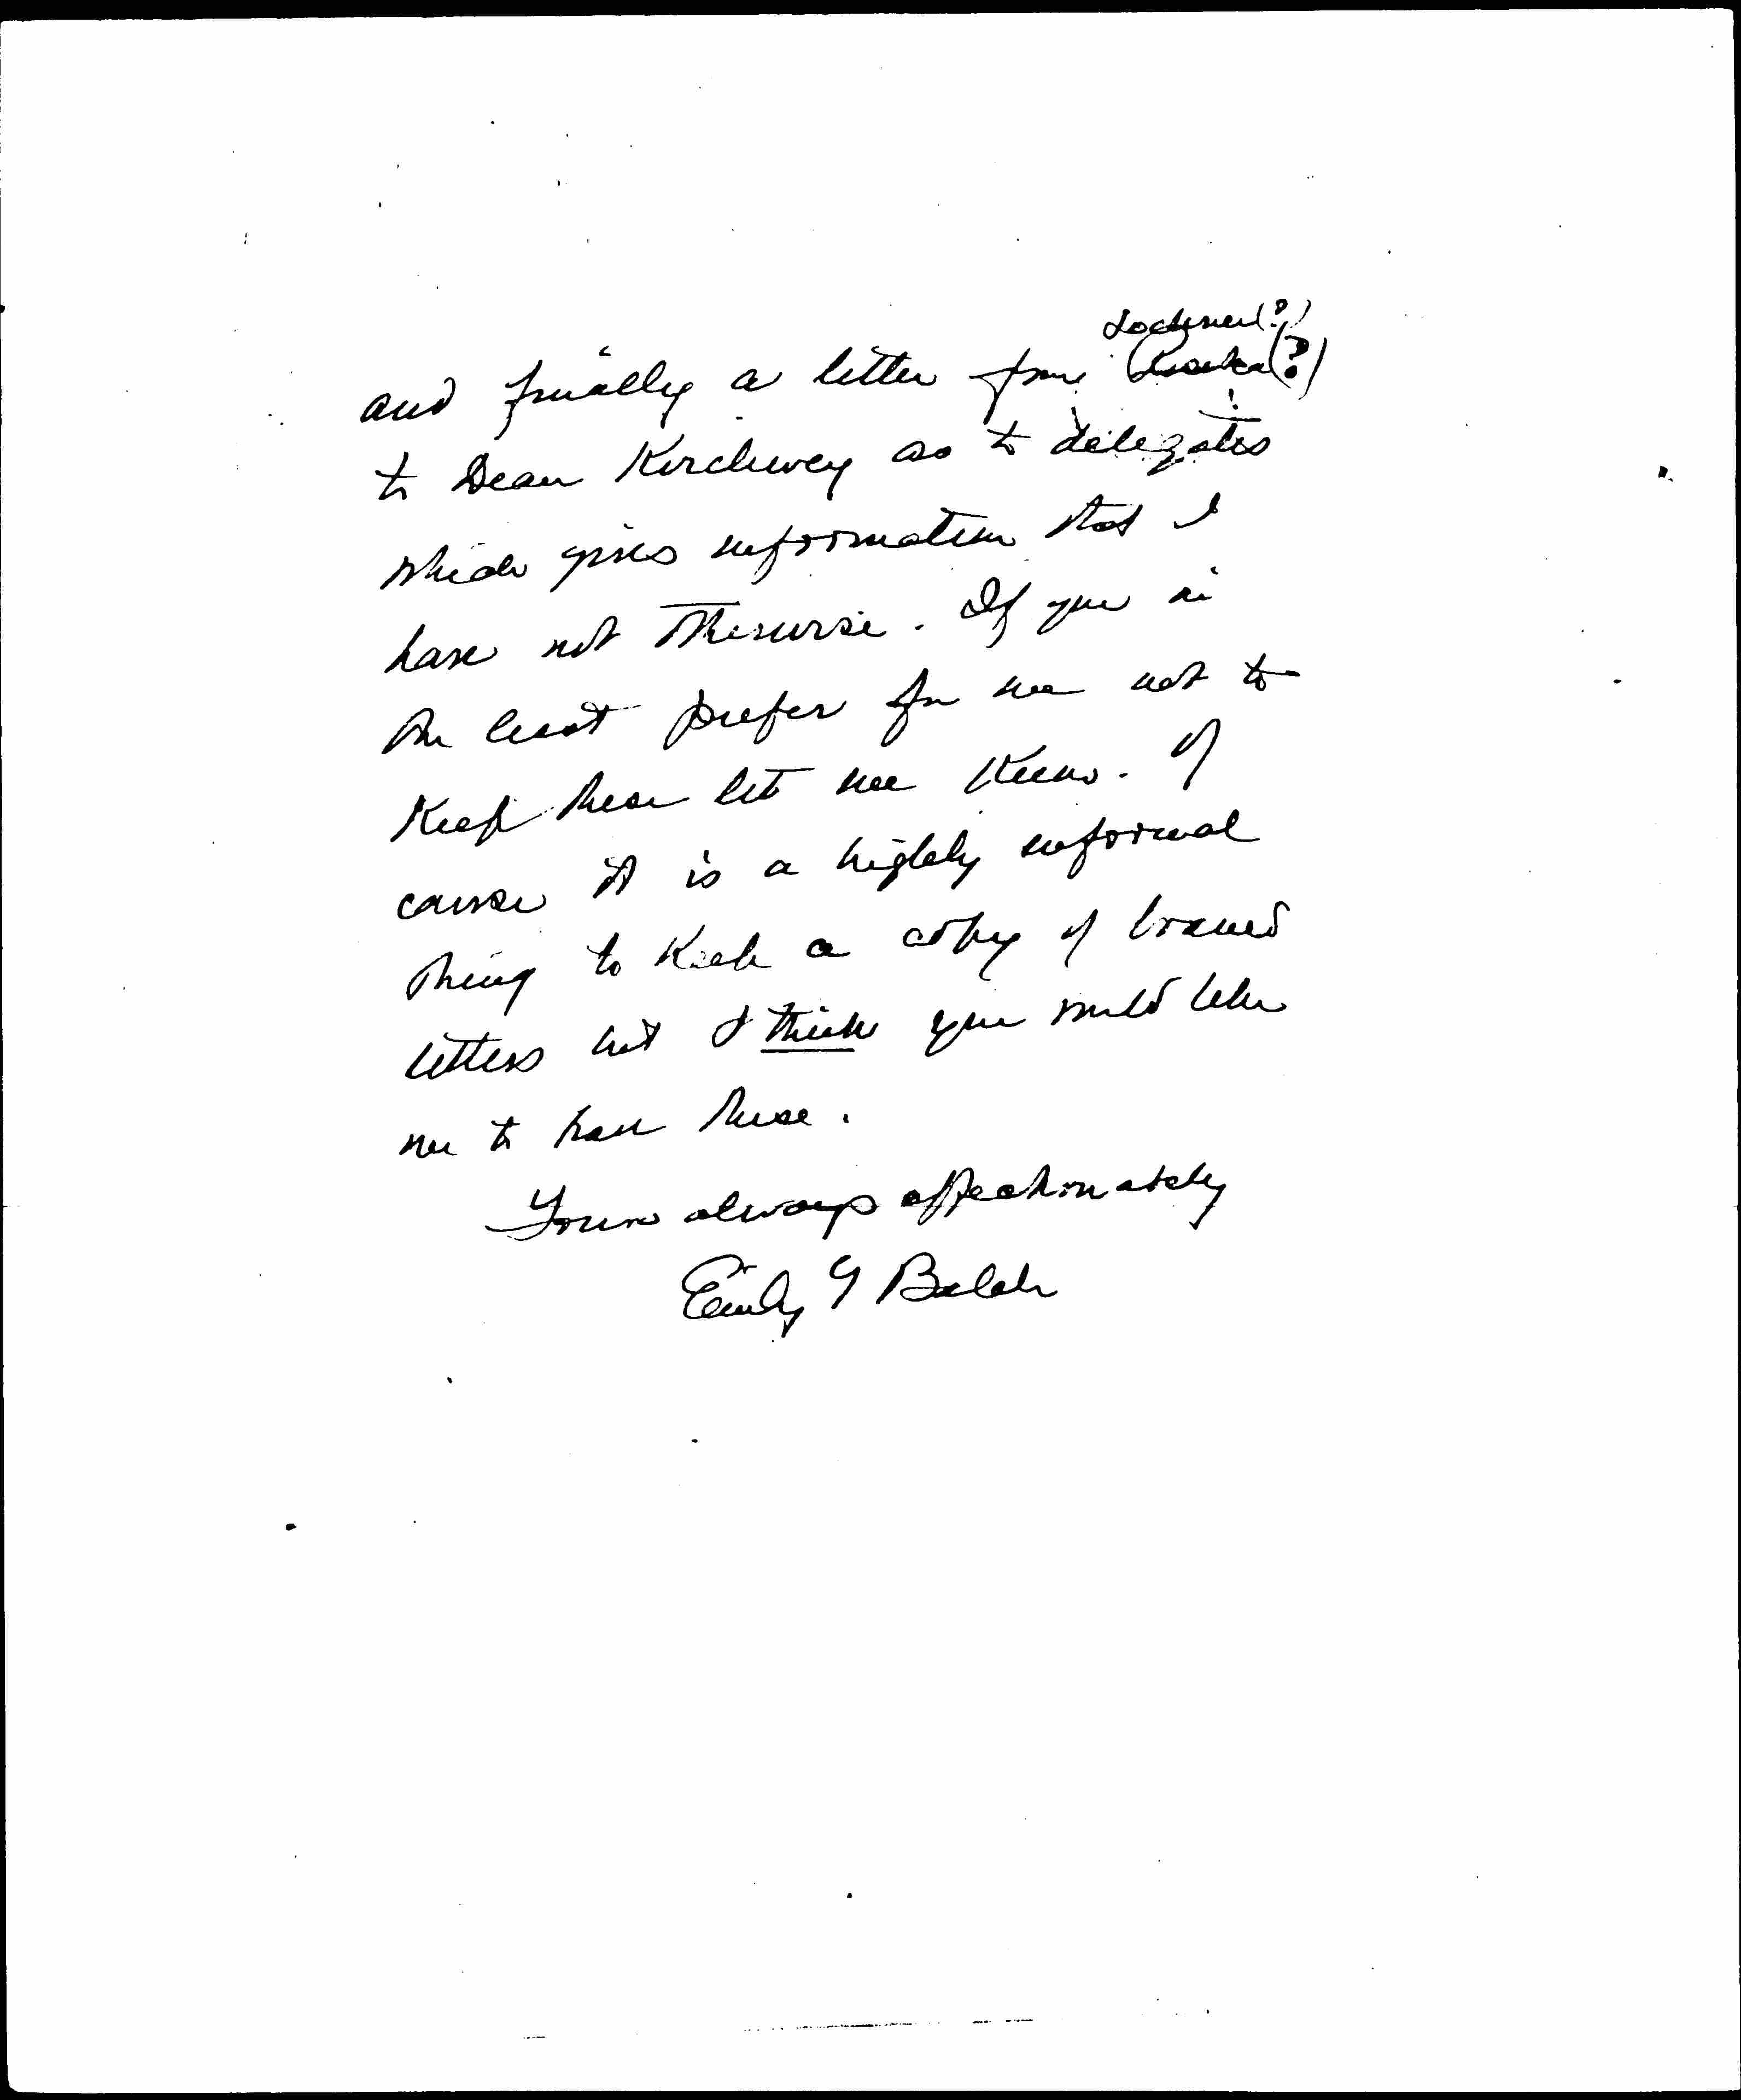 Lochner(?)
and finally a letter from (?)
to Dean Kirchwey as to delegates
which gives information that I
have not otherwise. If you in
the least prefer for me not to
keep these let me know. Of
course it is a highly informal
thing to keep a copy of loaned
letters but I think you would like
me to have these.
Yours always affectionately
Emily G Balch